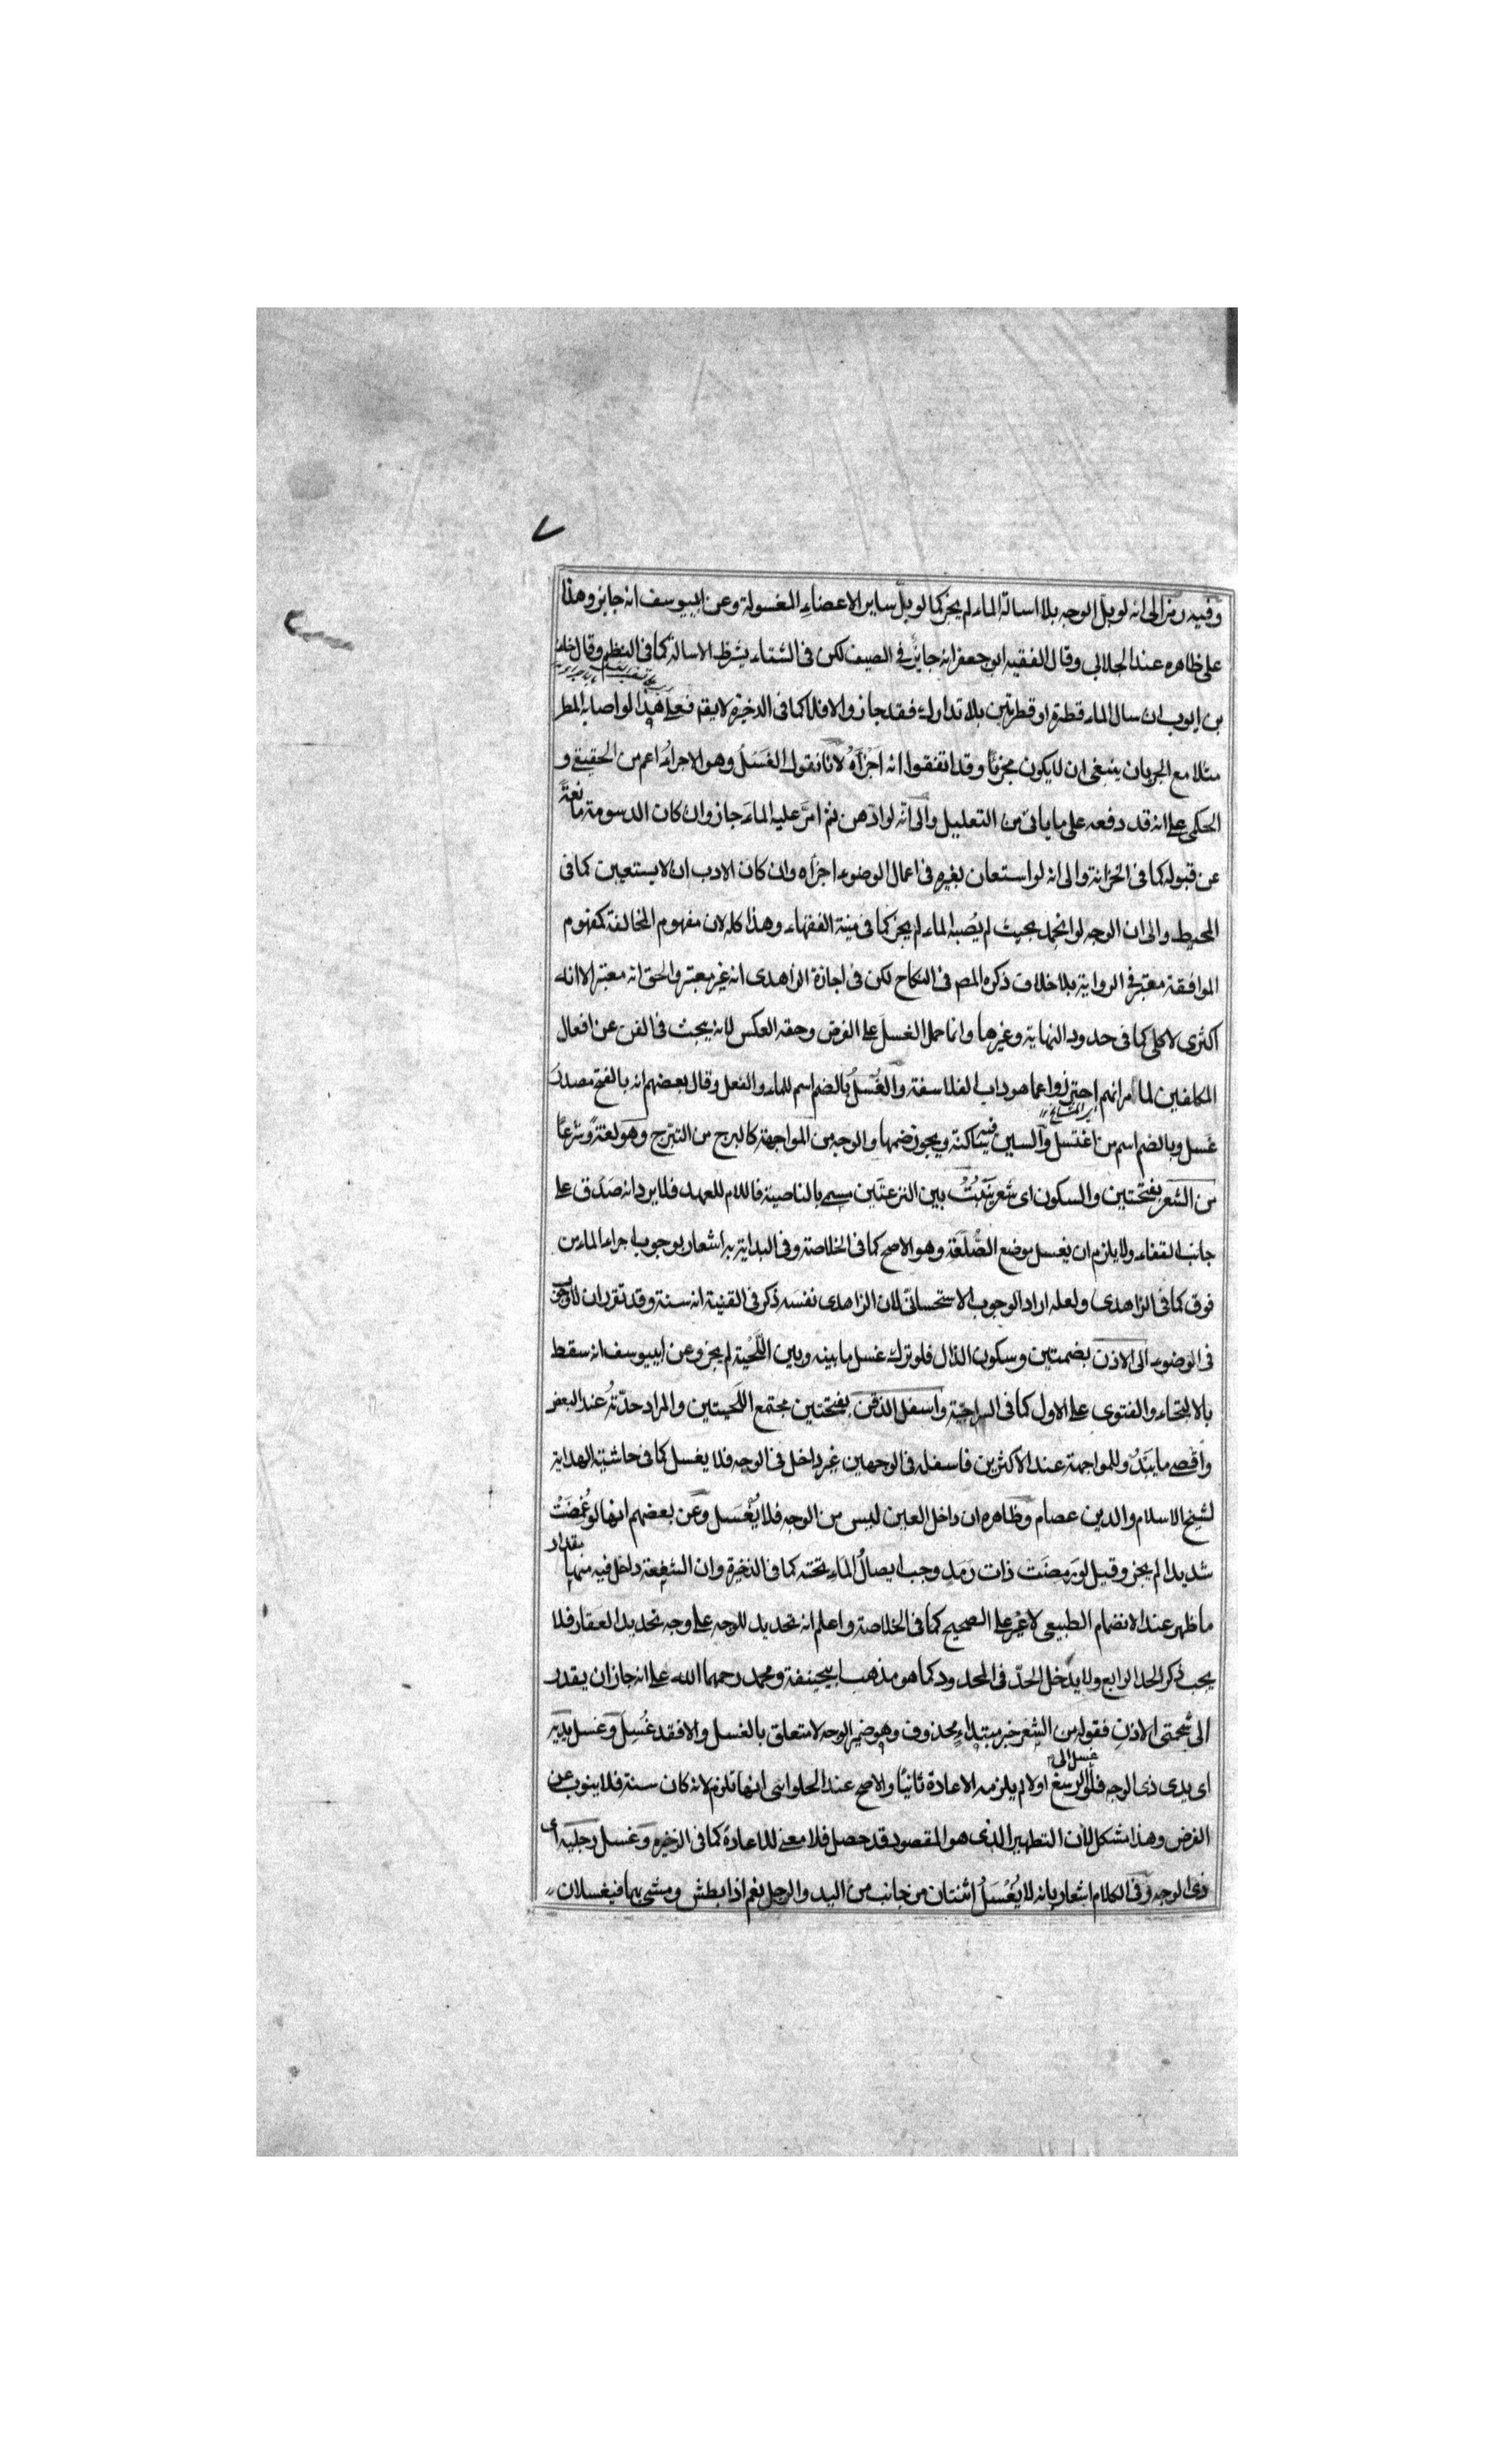 ٧
وفيه رمز الى انه لو بل الوجه بلا اسالة الماء لم يجز كما لو بل ساير الاعضاء المغسولة وعن ابيوسف انه جايز وهذا
على ظاهره عند الحلابي وقال الفقيه ابو جعفر انه جايز في الصيف لكن في الشتاء يشرط الاسالة كما في النظم وقال خلف
بن ايوب ان سال الماء قطرة او قطرتين بلا تدارك فقد جاز والا فلا كما في الذخيرة لا يقم فعلى هذا لو اصابه المطر
مثلا مع الجريان ينبغى ان لا يكون مجزئا وقد اتفقوا انه اجزاه لانا نقول الغسل وهو الاجراء اعم من الحقيقى و
الحكمى على انه قد دفعه على ما ياتى من التعليل والى انه لو ادهن ثم امر عليه الماء جاز وان كان الدسومة مانعة
عن قبوله كما في الخزانة والى انه لو استعان بغيره فى اعمال الوضوء اجزاه وان كان الادب ان لا يستعين كما فى
المحيط والى ان الوجه لو انجمد بحيث لم يصبه الماء لم يجز كما فى منية الفقهاء وهذا كله لان مفهوم المخالفة كمفهوم
الموافقة معتبر فى الرواية بلا خلاف ذكره المص فى النكاح لكن فى اجازة الزاهدى انه غير معتبر والحق انه معتبر الا انه
اكثرى لا كلى كما فى حدود النهاية وغيرها وانما حمل الغسل على الفرض وحقه العكس لانه يبحث فى الفن عن افعال
المكلفين لما مر انهم احترزوا عما هو داب الفلاسفة والغسل بالضم اسم للماء والفعل وقال بعضهم انه بالفتح مصدر
غسل وبالضم اسم من اغتسل والسين فيه ساكنة ويجوز ضمها والوجه من المواجهة كالبرج من التبرج وهو لغة وشرعا
من الشعر بفتحتين والسكون اى شعر ينبت بين النزعتين مسمى بالناصية فاللام للعهد فلا يرد انه صدق على
جانب القفاء ولا يلزم ان يغسل موضع الصلعة وهو الاصح كما فى الخلاصة وفى البداية به اشعار بوجوب اجراء الماء من
فوق كما فى الزاهدى ولعله اراد الوجوب الاستحسانى لان الزاهدى نفسه ذكر فى القنية انه سنة وقد تقرر ان لا وجوب
فى الوضوء الى الاذن بضمتين وسكون الذال فلو ترك غسل ما بينه وبين اللحية لم يجز وعن ابيوسف انه سقط
بالالتحاء والفتوى على الاول كما فى السراجية واسفل الذقن بفتحتين مجتمع اللحيتين والمراد حدته عند البعض
واقصى ما يبدو للمواجهة عند الاكثرين فاسفله فى الوجهين غير داخل فى الوجه فلا يغسل كما فى حاشية الهداية
لشيخ الاسلام والدين عصام وظاهره ان داخل العين ليس من الوجه فلا يغسل وعن بعضهم انها لو غمضت
شديدا لم يجز وقيل لو رمضت ذات رمد وجب ايصال الماء تحته كما فى الذخيرة وان الشفة داخل فيه منها مقدار
ما ظهر عند الانضمام الطبيعى لا غير على الصحيح كما فى الخلاصة واعلم انه تحديد للوجه على وجه تحديد العقار فلا
يجب ذكر الحد الرابع ولا يدخل الحد فى المحدود كما هو مذهب ابيحنيفة ومحمد رحمهما الله على انه جاز ان يقدر
الى شحمتى الاذن فقوله من الشعر خبر مبتداء محذوف وهو ضمير الوجه لا متعلق بالغسل والا فقد غسل وغسل يديه
اى يدى ذى الوجه فلو غسل الى الرسغ اولا لم يلزمه الاعادة ثانيا والاصح عند الحلوانى انها تلزم لانه كان سنة فلا ينوب عن
الفرض وهذا مشكل لان التطهير الذى هو المقصود قد حصل فلا معنى للاعادة كما فى الذخيرة وغسل رجليه اى
ذى الوجه وفى الكلام اشعار بانه لا يغسل اثنتان من جانب من اليد والرجل نعم اذا بطش ومشى بهما فيغسلان